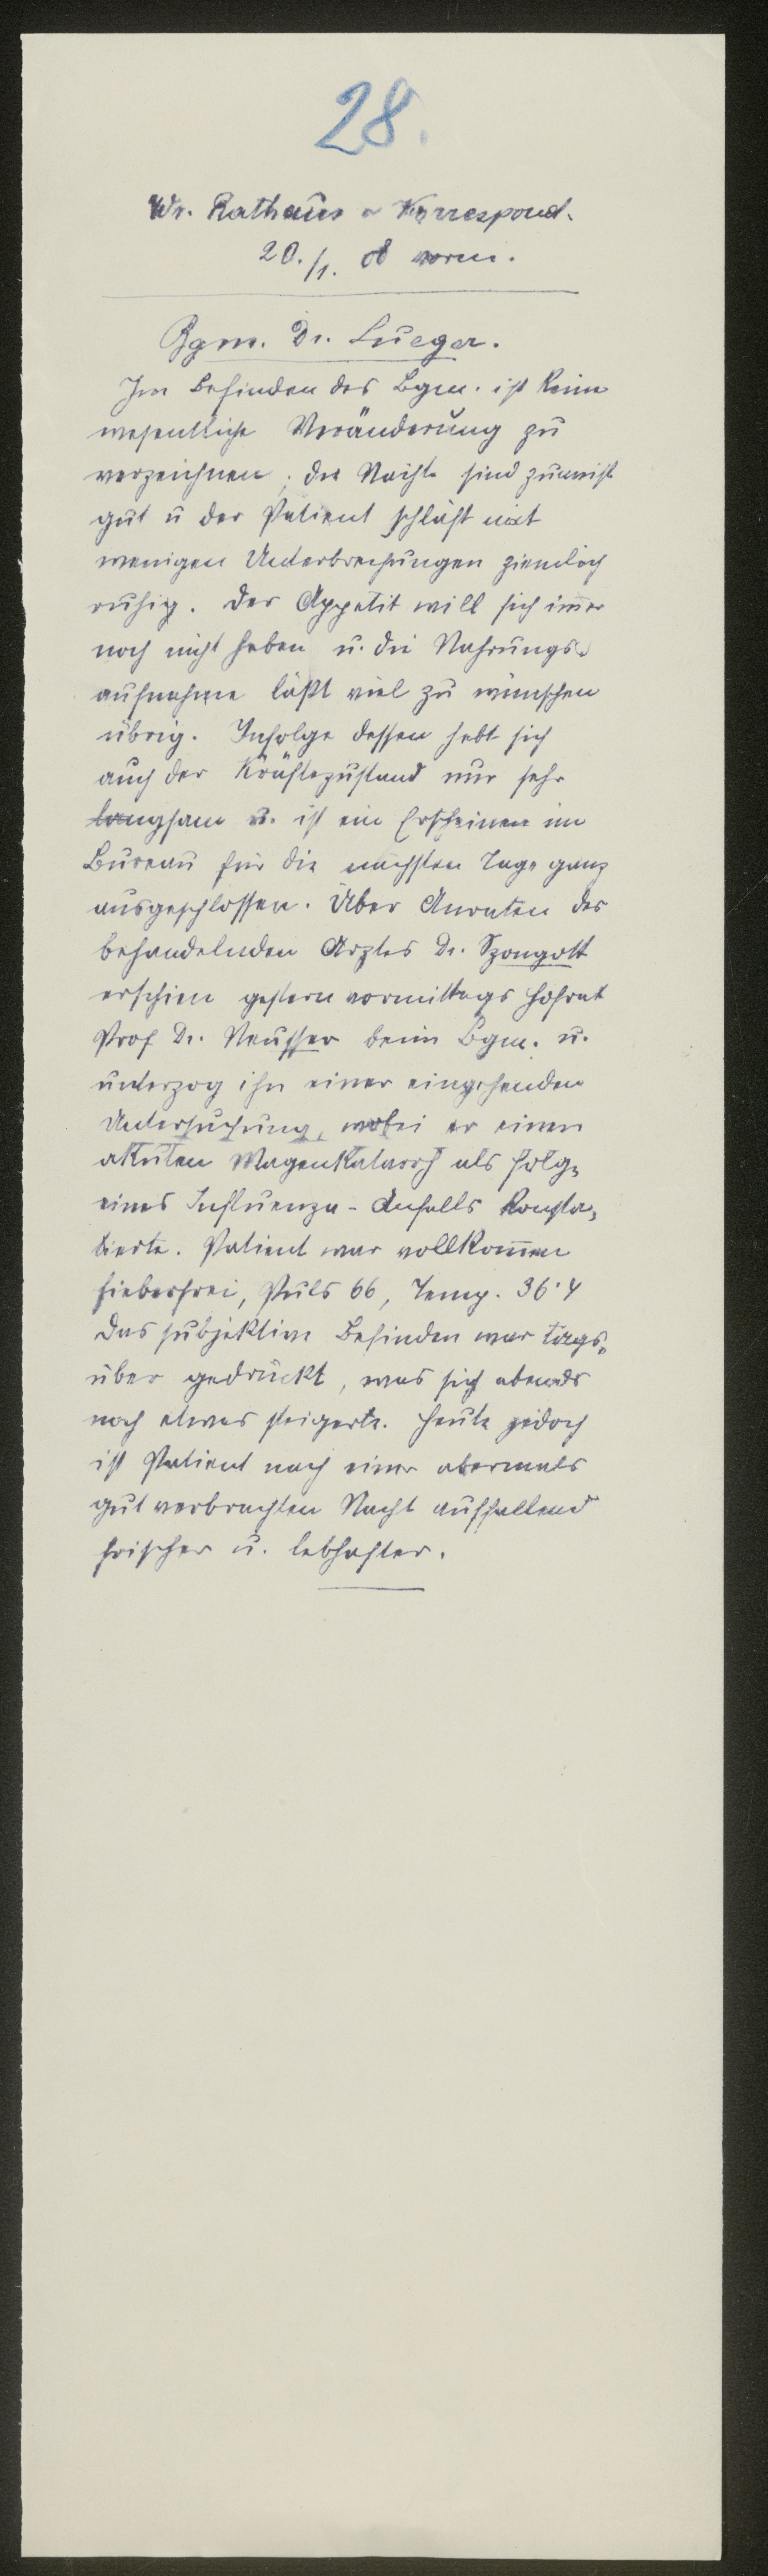 28.
Wr. Rathaus-Korrespond.
20./1. 08 vorm.
Bgm. Dr. Lueger.
Im Befinden des Bgm. ist keine
wesentliche Veränderung zu
verzeichnen; die Nächte sind zumeist
gut u der Patient schläft mit
wenigen Unterbrechungen ziemlich
ruhig. Der Appetit will sich im̄er
noch nicht heben u. die Nahrungs-
aufnahme läßt viel zu wünschen
übrig. Infolge dessen hebt sich
auch der Kräftezustand nur sehr
langsam u. ist ein Erscheinen im
Bureau für die nächsten Tage ganz
ausgeschlossen. Über Anraten des
behandelnden Arztes Dr. Szongott
erschien gestern vormittags Hofrat
Prof Dr. Neusser beim Bgm. u.
unterzog ihn einer eingehenden
Untersuchung, wobei er einen
akuten Magenkatarrh als Folge
eines Influenza-Anfalls konsta-
tierte. Patient war vollkom̄en
fieberfrei, Puls 66, Temp. 36·4
Das subjektive Befinden war tags-
über gedrückt, was sich abends
noch etwas steigerte. Heute jedoch
ist Patient nach einer abermals
gut verbrachten Nacht auffallend
frischer u. lebhafter.